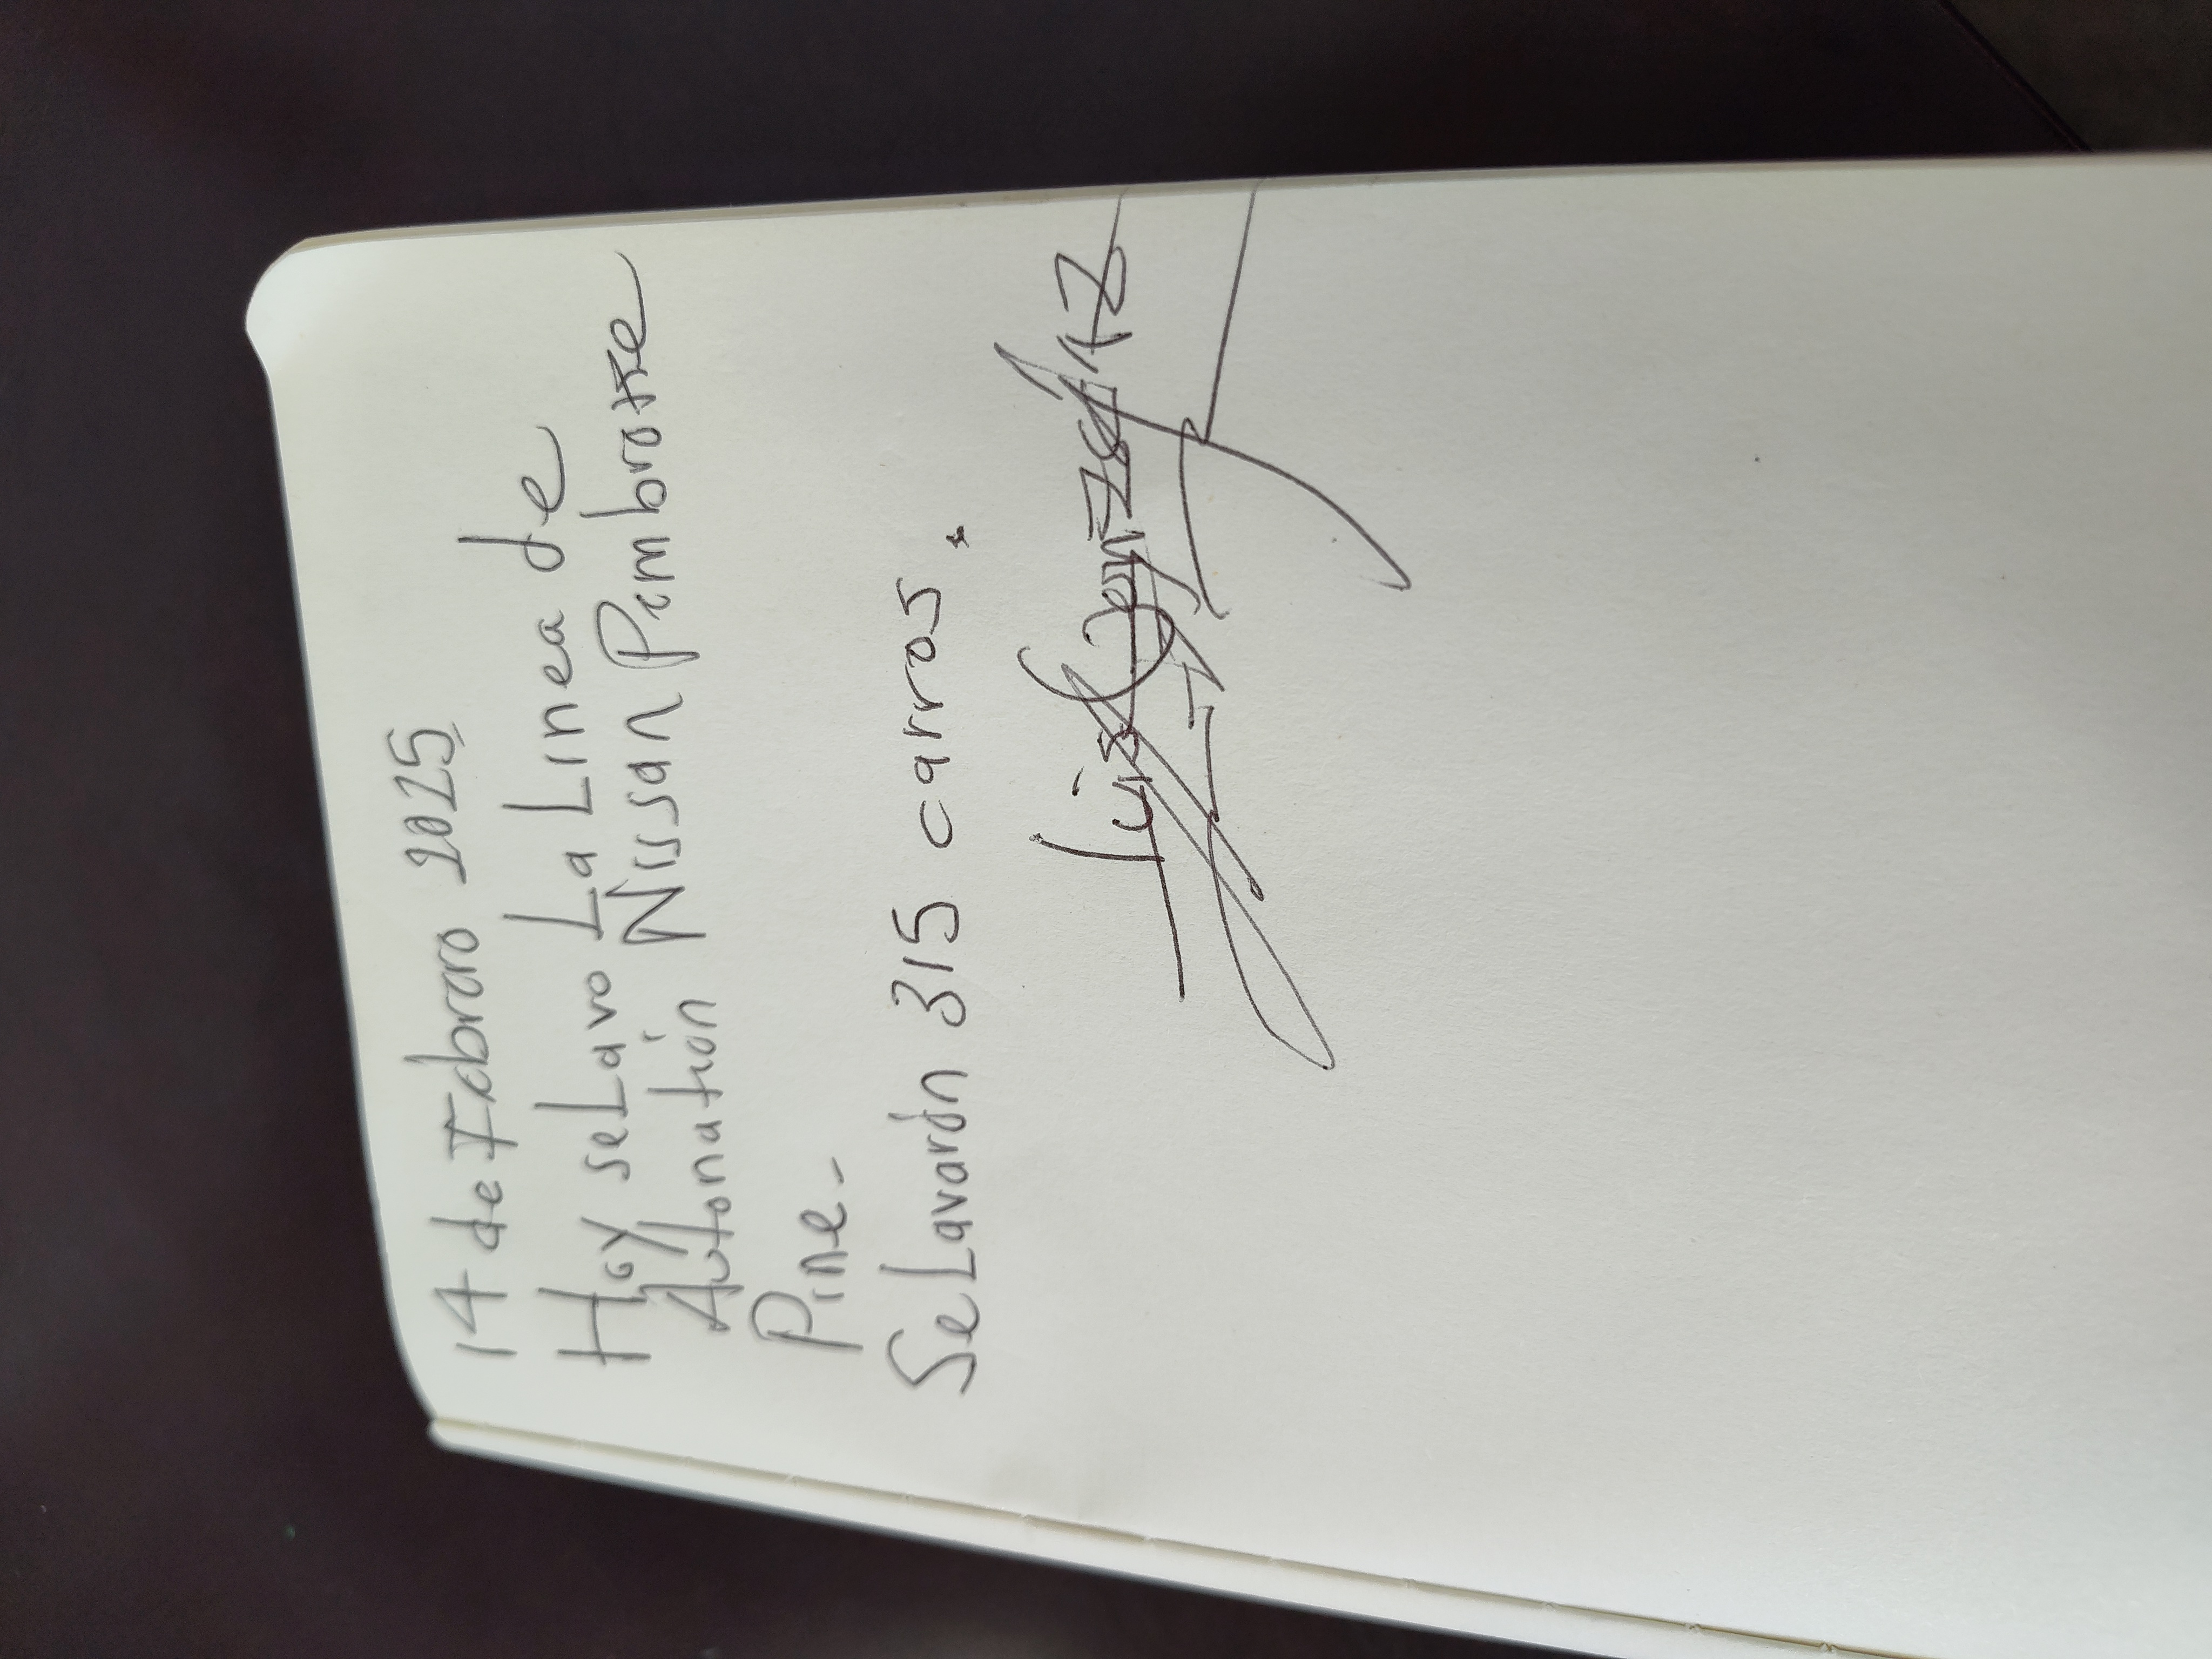 14 de Febrero 2025
Hoy se Lavo La Linea de
Autonatión Nissan Pimbroke
Pine-
Se Lavarón 315 carros.
Luis Gonzalez